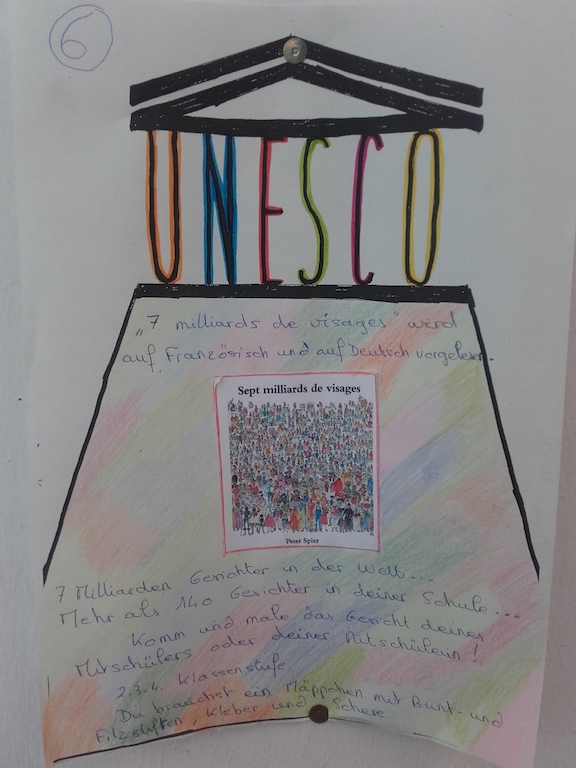 6
UNESCO
„7 milliards de visages" wird
auf Französisch und auf Deutsch vorgelesen.
Sept milliards de visages
Peter Spier
7 Milliarden Gesichter in der Welt...
Mehr als 140 Gesichter in deiner Schule...
Komm und male das Gesicht deines
Mitschülers oder deiner Mitschülein!
2.3.4. Klassenstufe
Du brauchst ein Mäppchen mit Bunt- und
Filzstiften, Kleber und Schere